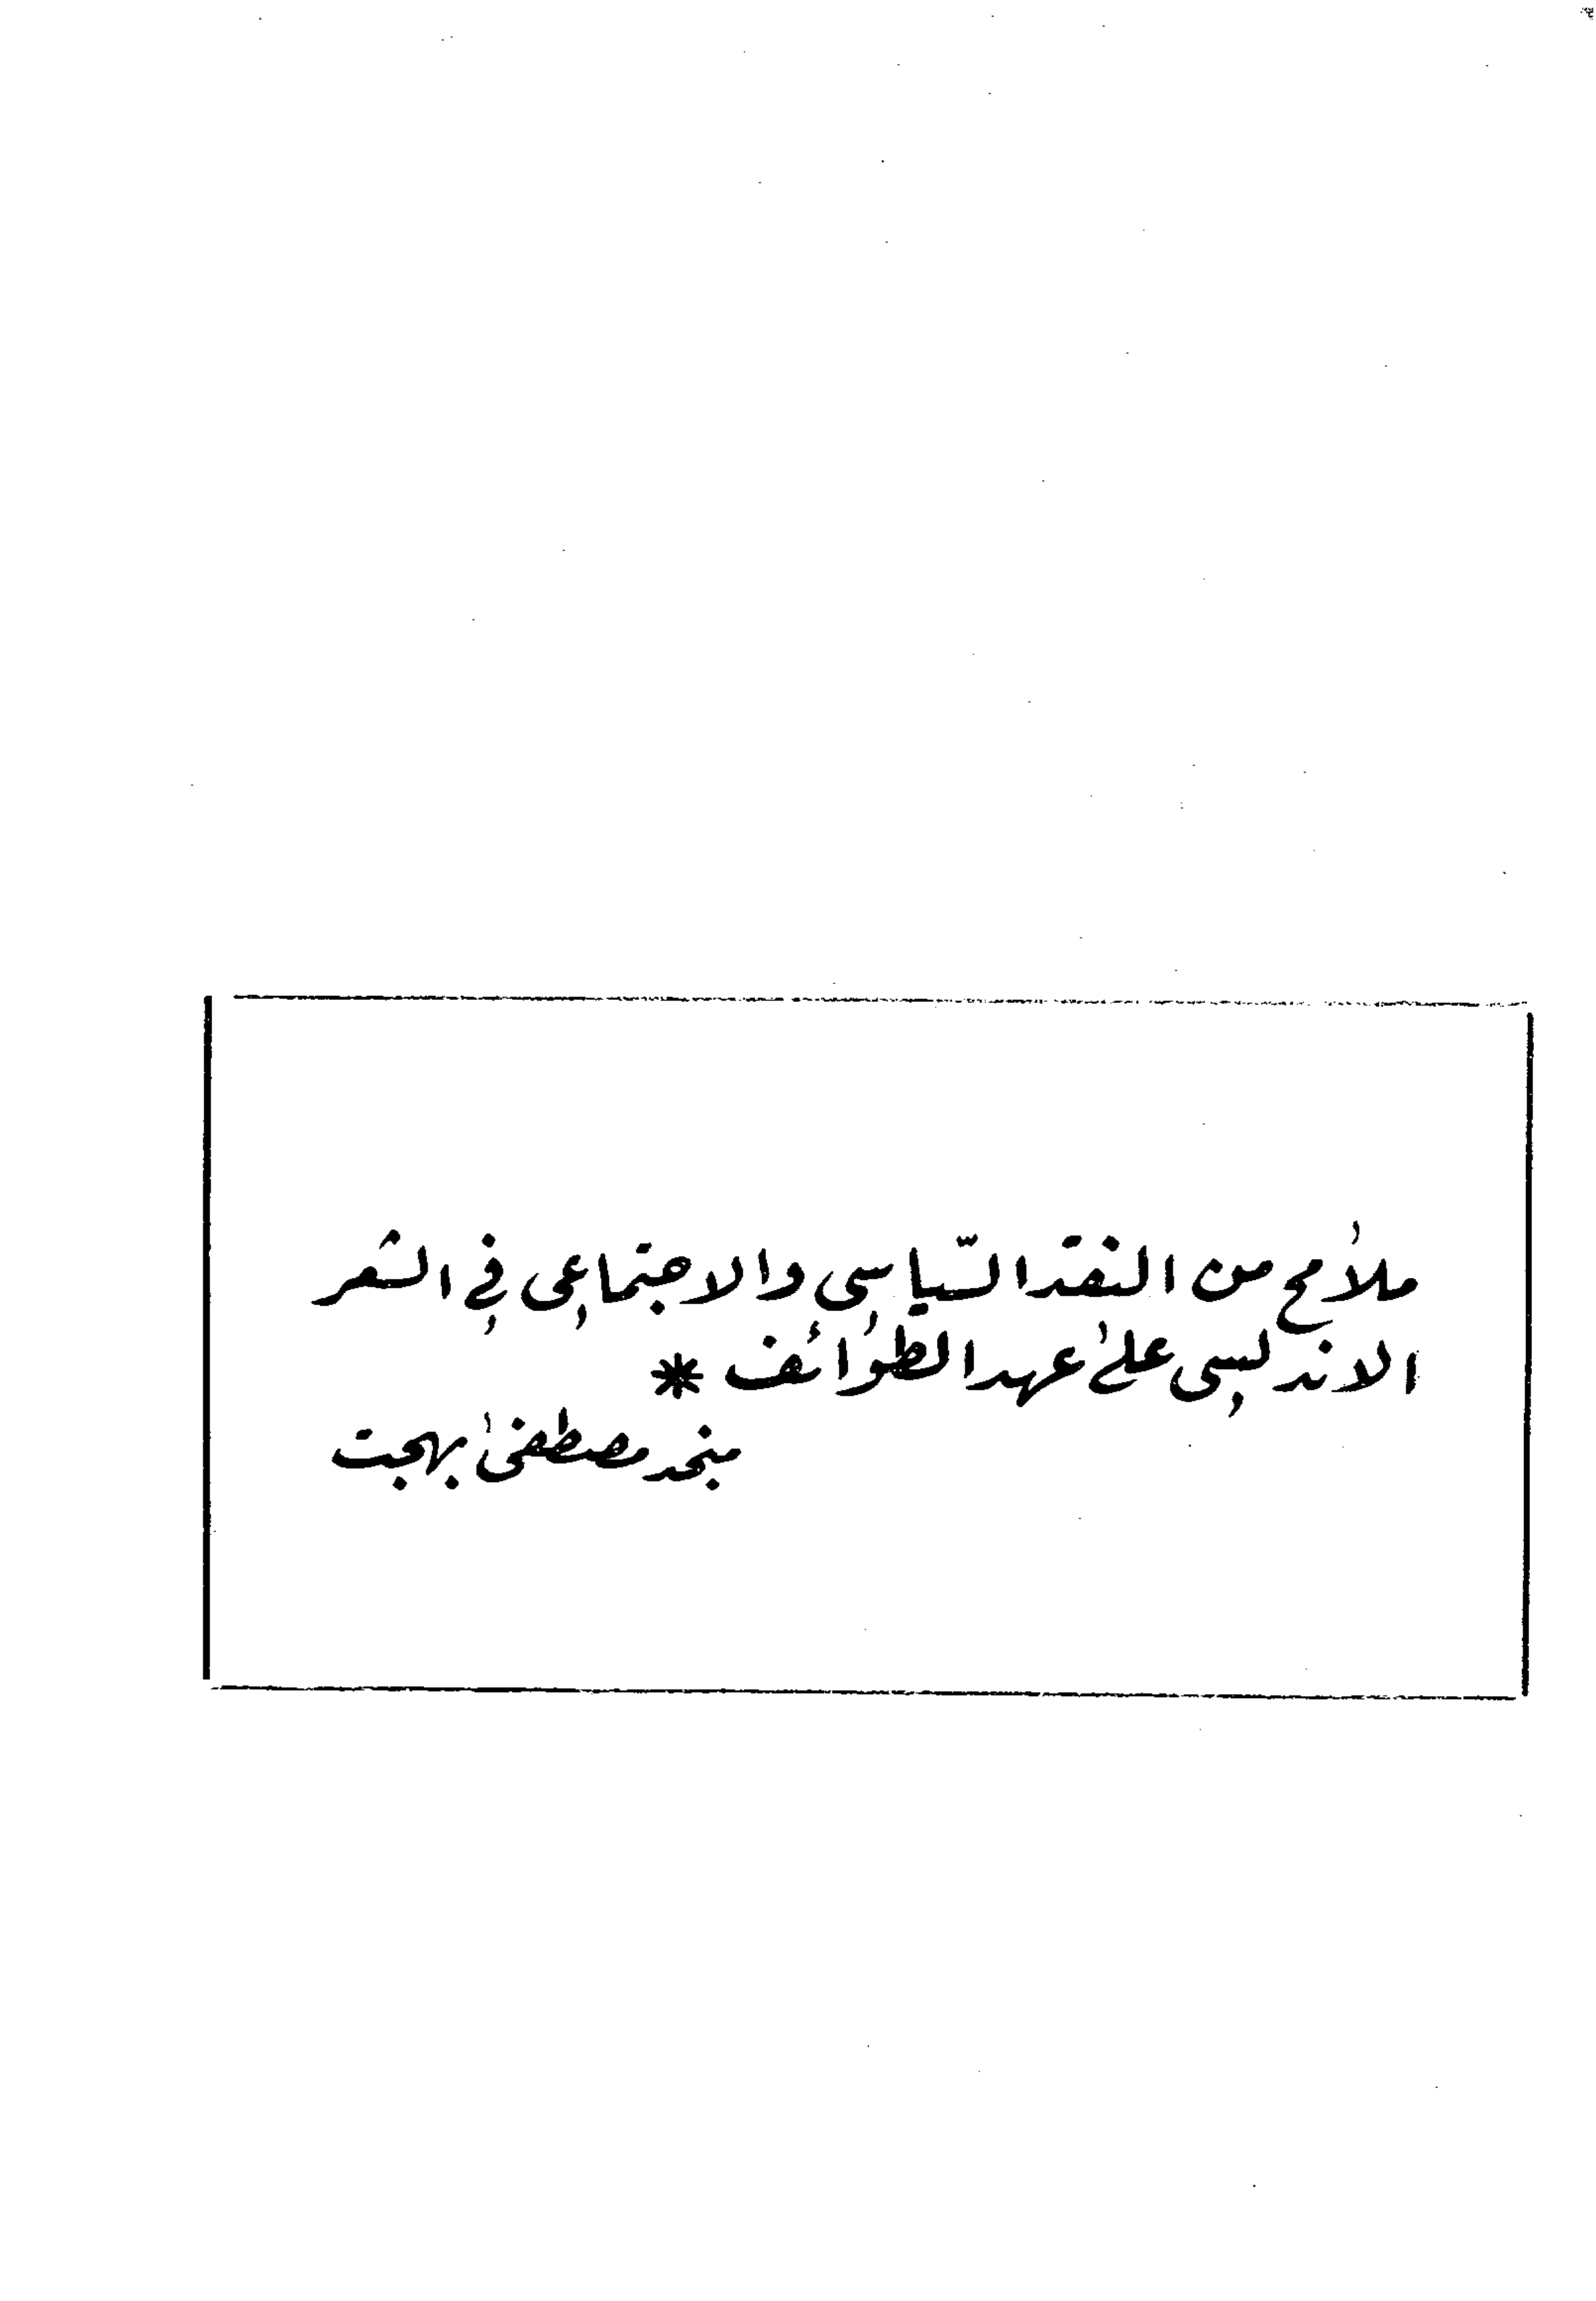 ملامح من النقد السّياسي والاجتماعي في الشعر
الاندلسي على عهد الطوائف *
منجد مصطفى بهجت